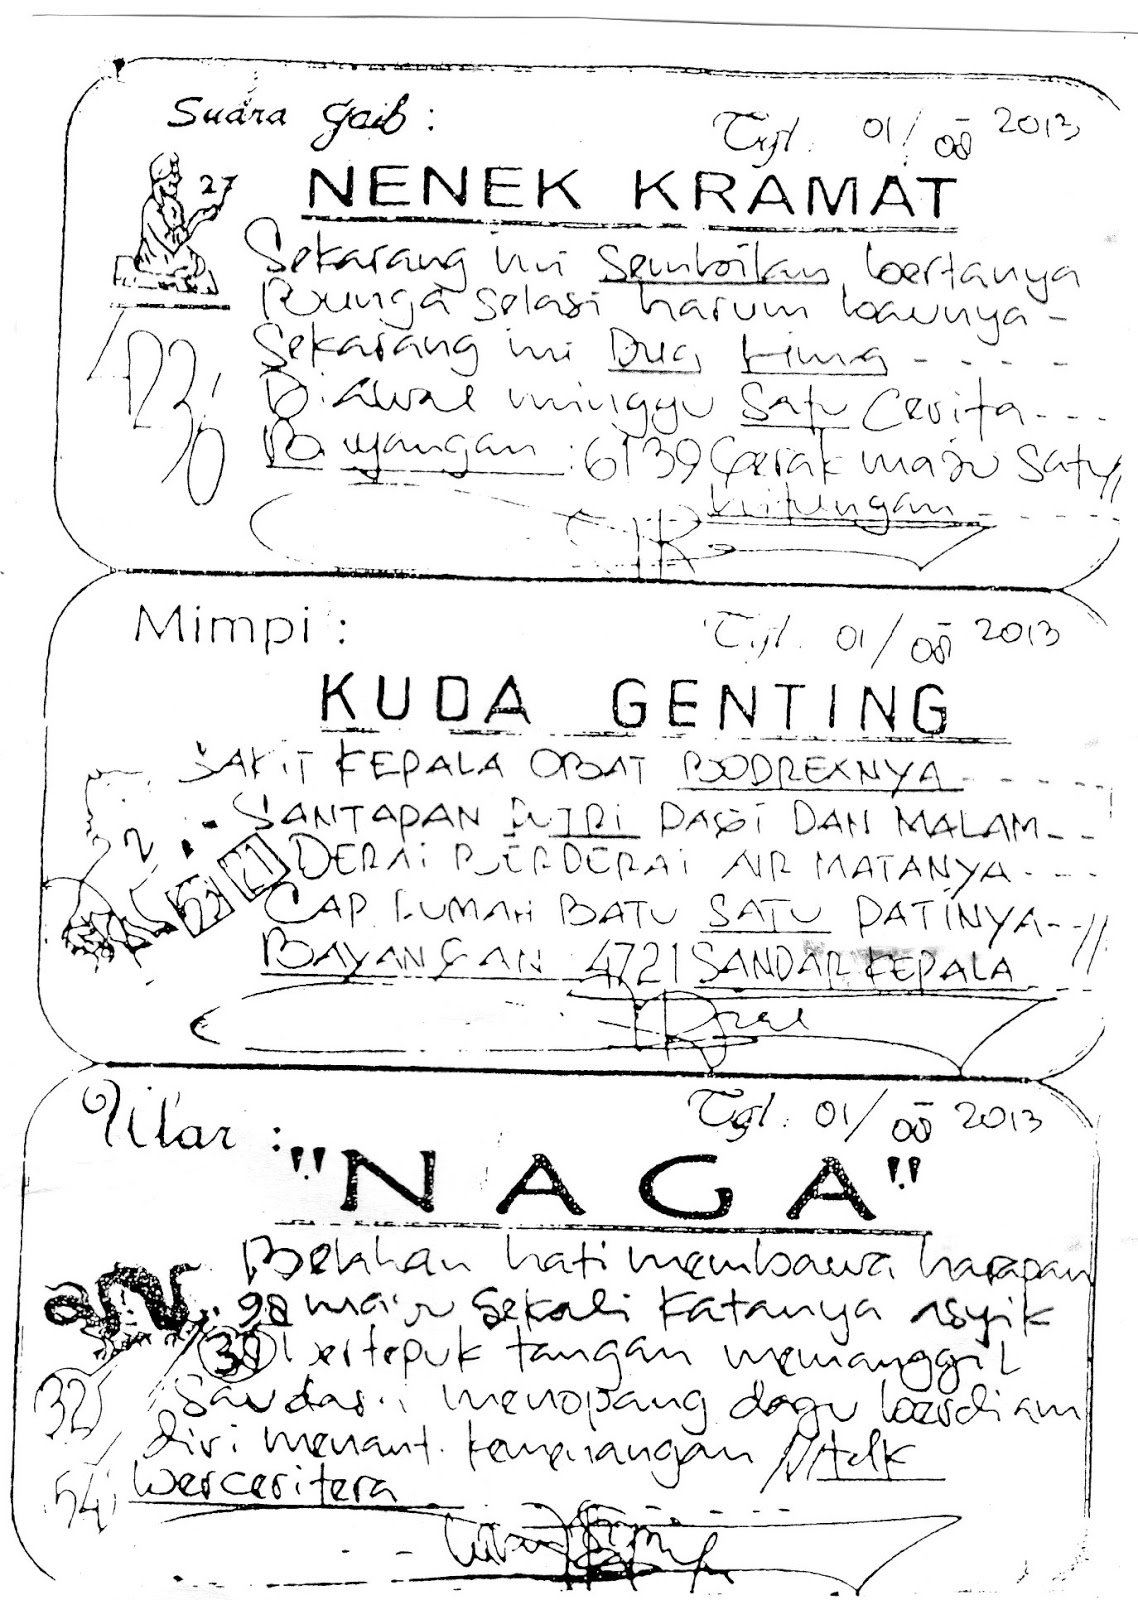 Suara gaib :
Tgl. 01/08 2013
NENEK KRAMAT
27
Sekarang ini Sembilan bertanya
Bunga Selasi harum baunya -
Sekarang ini Dua Lima - - - - -
Diawal minggu Satu Cerita - - -
Bayangan : 6139 Gerak maju Satu
hitungan - - - -
Mimpi :
Tgl. 01/08 2013
KUDA GENTING
SAKIT KEPALA OBAT BODREXNYA - - - - -
SANTAPAN PUTRI PAGI DAN MALAM - -
2
21
DERAI BERDERAI AIR MATANYA - - - -
CAP RUMAH BATU SATU PATINYA - -
BAYANGAN 4721 SANDAR KEPALA - - -
Ular :
Tgl. 01/08 2013
"NAGA"
hati membawa harapan
98 maju sekali katanya asyik
bertepuk tangan memanggil
32
menopang dagu berdiam
diri menanti kemenangan
54
berceritera